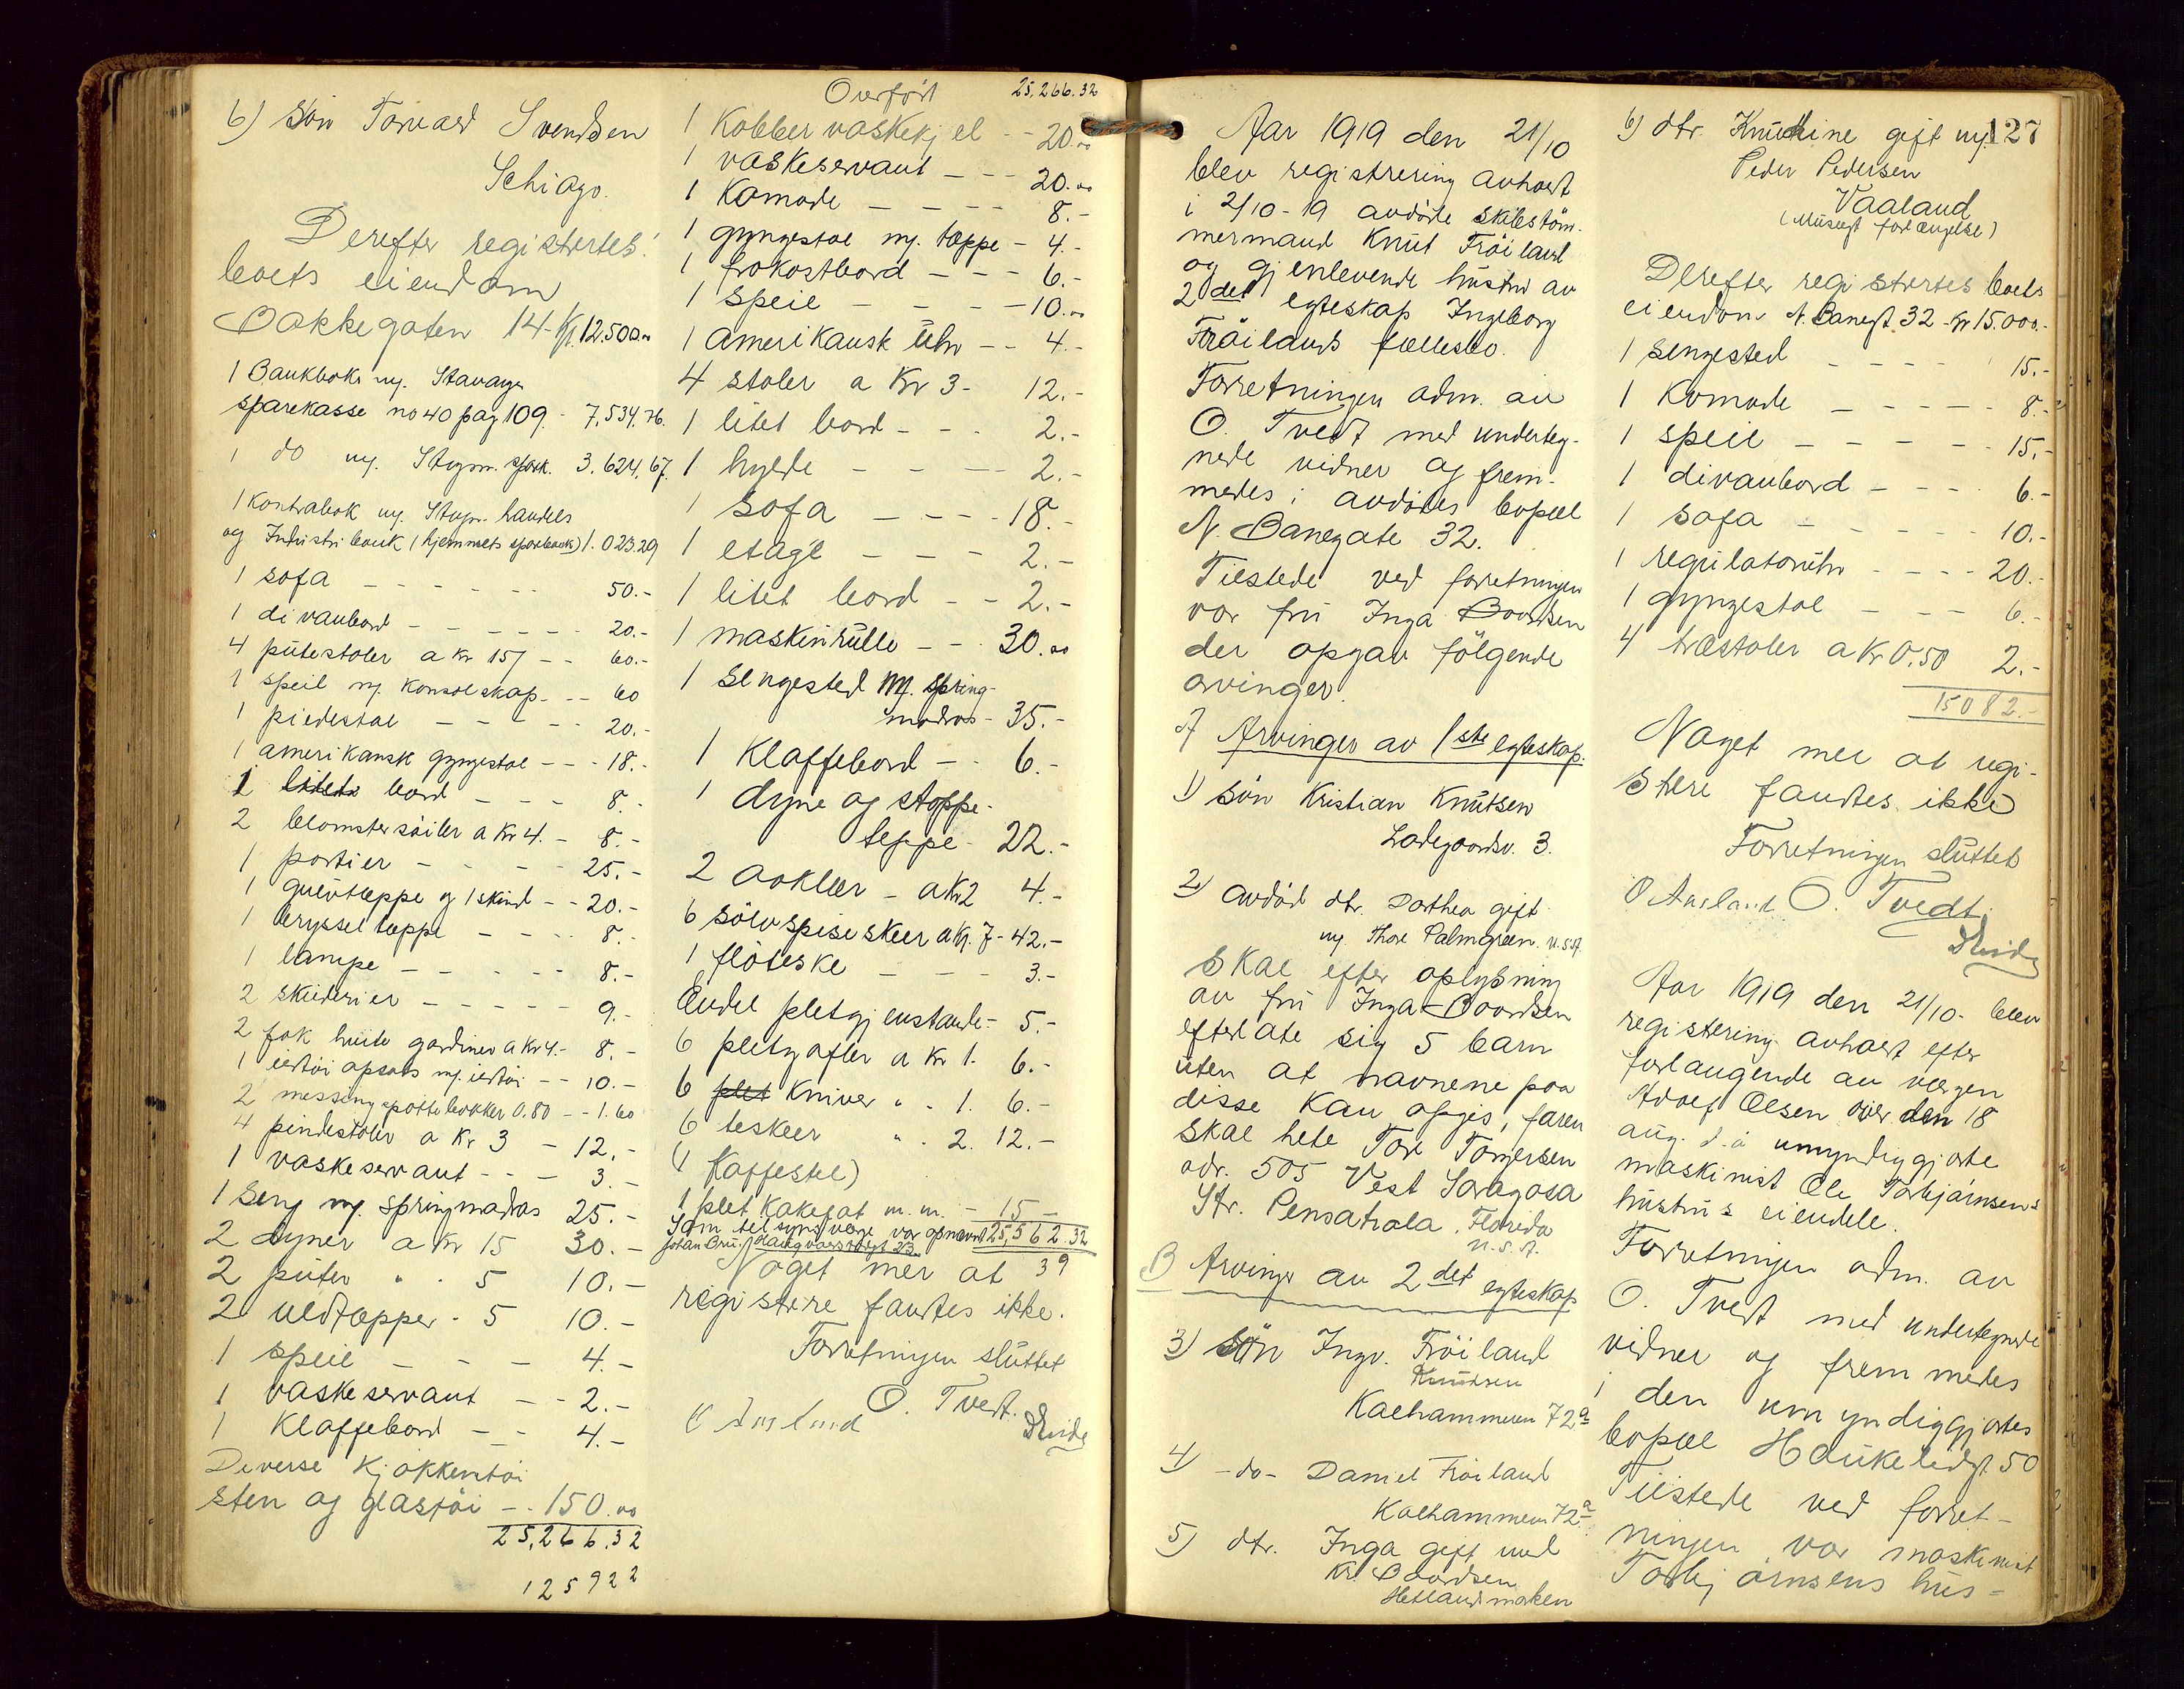 6) Søn Torvald Svendsen
Schiago.
Derefter registertes
boets eiendom
Bakkegaten 14 - Kr. 12.500.00
1 Bankbok m. Stavanger
sparekasse no 40 pag 109. - 7,534.76.
1 do m. Stvgr. spark. 3.624.67.
1 Kontrabok m. Stvgr. handels
og Industri bank (hjemmets sparebank) 1.023.29
1 sofa - - - - - 50.-
1 divanbord - - - - - 20.-
4 pütestoler a Kr 15/ - - 60.-
1 speil m. Konsolskap - - 60
1 piedestal - - - - 20.-
1 amerikansk gyngestol - - - 18.-
1 litets bord - - - 8.-
2 blomstersøiler a Kr 4. - 8.-
1 portier - - - - 25.-
1 gulvtæppe og 1 skind - - 20.-
1 bryssel tæppe - - - - 8.-
1 lampe - - - - - 8.-
2 skilderier - - - - - 9.-
2 fak hvite gardiner a Kr 4.- 8.-
1 ildtøi opsats m. ildtøi - - 10.-
2 messing pottebakker 0.80 - - 1.60
4 pindestoler a Kr 3 - 12.-
1 vaskeservant - - - 3.-
1 Seng m. springmadras 25.-
2 dyner a Kr 15 30.-
2 püter " . 5 10.-
2 uldtæpper - 5 10.-
1 speil - - - 4.-
1 vaskeservant - - 2.-
1 Klaffebord - - 4.-
Diverse Kjøkkentøi
sten og glastøi - - 150.00
25,266.32
125922
Overført 25,266.32
1 Kobber vaskekjel - - 20.00
1 vaskeservant - - - 20.00
1 Komode - - - - 8.-
1 gyngestol m. tæppe - 4.-
1 frokostbord - - - 6.-
1 speil - - - - 10.00
1 amerikansk ühr - - 4.-
4 stoler a Kr 3 - 12.-
1 litet bord - - - 2.-
1 hylde - - - - 2.-
1 sofa - - - - 18.-
1 etagé - - - 2.-
1 litet bord - - 2.-
1 maskinrülle - - 30.00
1 Sengested m. spring-
madras - 35.-
1 Klaffebord - - 6.-
1 dyne og stoppe-
teppe - 22.-
2 aaklær - a Kr 2 4.-
6 sølvspiseskeer a Kr. 7 - 42.-
1 fløteske - - - 3.-
Endel pletgjenstande - 5.-
6 pletgafler a Kr 1. 6.-
6 plet Kniver " . 1. 6.-
6 teskeer " . 2. 12.-
(1 Kaffestel)
1 plet Kakefat m.m. - 15 -
Som tilsynsverge var opnævnt 25,562.32
Johan Bru. Haugvaldstadgt 23
Noget mer at 39
registere fandtes ikke.
Forretningen slüttet
O. Tvedt.
O Aasland
Aar 1919 den 21/10
blev registrering avholdt
i 2/10-19 avdøde skibstøm-
mermand Knut Frøiland
og gjenlevende hüstru av
2det egteskap Ingeborg
Frøilands fællesbo.
Forretningen adm. av
O. Tvedt med underteg-
nede vidner og frem-
mødes i avdødes bopæl
N. Banegate 32.
Tilstede ved forretningen
var frü Inga Boardsen
der opgav følgende
arvinger.
A Arvinger av 1ste egteskap.
1) søn Kristian Knütsen
Ladegaardsv. 3.
2) avdød dtr. Dorthea gift
m. Thore Palmgreen U.S.A
Skal efter oplysning
av frü Inga Boardsen
efterlate sig 5 barn
üten at navnene paa
disse kan opgis, faren
skal hete Tore Torgersen
adr. 505 Vest Saragosa
Str. Pensatrola, Florida
U.S.A.
B Arvinger av 2det egteskap
3) Søn Ingv. Frøiland
Knudsen
Kalhammeren 72a
4) -do- Daniel Frøiland
Kalhammeren 72a
5) dtr. Inga gift med
Kr. Boardsen
Hetlandsmarken
127
6) dtr. Knudtine gift m.
Peder Pedersen
Vaaland
(Müsegt forlængelse)
Derefter registertes boets
eiendom N. Banegt. 32 - Kr 15.000.-
1 sengested - - - - 15.-
1 Komode - - - - - 8.-
1 speil - - - - - 15.-
1 divanbord - - - - 6.-
1 sofa - - - - - 10.-
1 regülatorühr - - - - 20.-
1 gyngestol - - - 6.-
4 træstoler a Kr 0.50 2.-
15082.-
Noget mer at regi-
stere fandtes ikke
Forretningen slüttet
O Aasland O. Tvedt.
Aar 1919 den 21/10 - blev
registering avholdt efter
forlangende av værgen
Adolf Olsen over den 18
aug. d.å umyndiggjorte
maskinist Ole Torbjørnsens
hüstrüs eiendele.
Forretningen adm. av
O. Tvedt med undertegnede
vidner og fremmødes
i den umyndiggjortes
bopæl Haukeligt. 50
Tilstede ved forret-
ningen var maskinist
Torbjørnsens hüs-